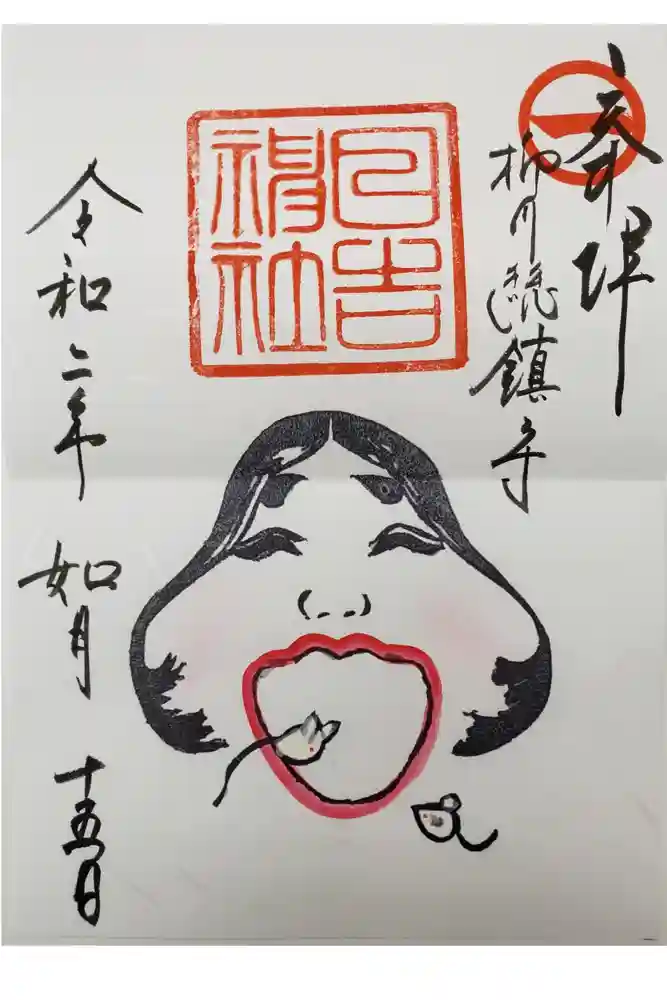 奉拝
柳川総鎮守
日吉
神社
令和二年 如月 十五日